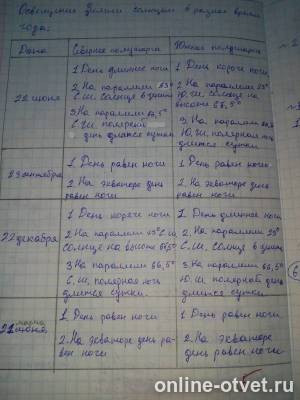 Освещение Земли солнцем в разное время
года:
Дата
Северное полушарие
Южное полушарие
22 июня
1. День длиннее ночи
2. На параллели 23°
С.ш. Солнце в зените
3. На параллели 66,5°
С.ш. полярный
день длится сутки.
1. День короче ночи
2. На параллели 23°
Ю.ш. Солнце на
высоте 66,5°
3. На параллели 66,5°
Ю.ш. полярная ночь
длится сутки.
23 сентября
1. День равен ночи
2. На экваторе день
равен ночи
1. День равен ночи.
2. На экваторе день
равен ночи.
22 декабря
1. День короче ночи
2. На параллели 23° С.ш
Солнце на высоте 66,5°
3. На параллели 66,5°
С.ш. полярная ночь
длится сутки.
1. День длиннее ночи.
2. На параллели 23°
Ю.ш. Солнце в зените
3. На параллели 66,5°
Ю.ш. полярный день
длится сутки.
21 марта
июня
1. День равен ночи.
2. На экваторе день ра-
вен ночи
1. День равен ночи
2. На экваторе
день равен ночи.
online-otvet.ru